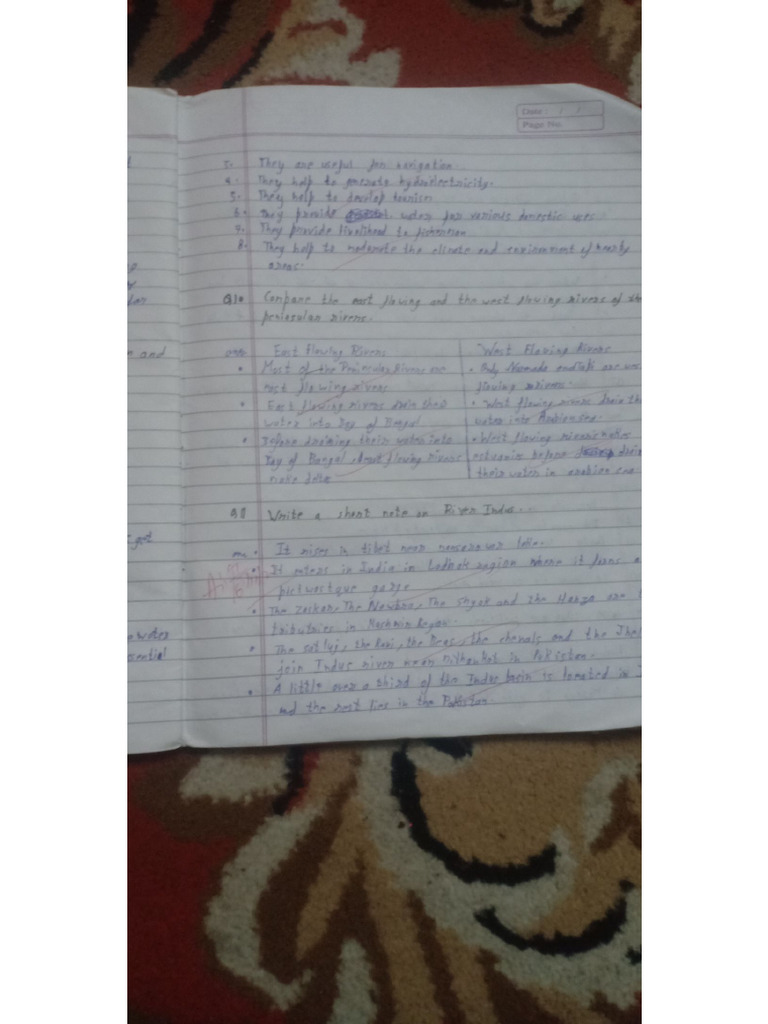 Date: / /
Page No.
3. They are useful for navigation.
4. They help to generate hydroelectricity.
5. They help to develop tourism
6. They provide water for various domestic uses
7. They provide livelihood to fishermen
8. They help to moderate the climate and environment of nearby
areas.
Q10 Compare the east flowing and the west flowing rivers of
peninsular rivers.
ans East Flowing Rivers
• Most of the Peninsular Rivers are
east flowing rivers
• East flowing rivers drain their
water into Bay of Bengal
• Before draining their water into
Bay of Bangal, east flowing rivers
make delta
West Flowing Rivers
• Only Narmada and are
flowing rivers.
• West flowing rivers drain
water into Arabian sea.
• West flowing rivers makes
estuaries before
their water in arabian sea
Q11 Write a short note on River Indus.
ans • It rises in tibet near mansarovar lake.
• It enters in India in Ladhak region where it forms
picturesque gorge
• The Zaskar, The Nowbra, The Shyok and The Hunza are
tributaries in Kashmir Region.
• The satluj, the Ravi, the Beas, the chenab and the
join Indus river near Mithankot in Pakistan.
• A little over a third of the Indus basin is located in
and the rest lies in the Pakistan
and
got
water